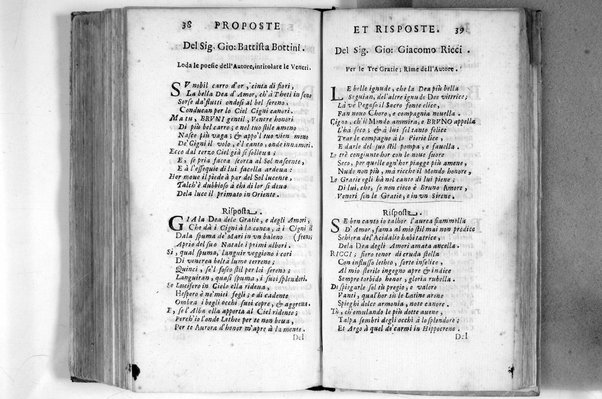 38 PROPOSTE
Del Sig. Gio: Battista Bottini.
Loda le poesie dell'Autore, intitolare le Veneri.
SV nobil carro d'or, cinta di fiori,
La bella Dea d'Amor, ch'à Theti in seno
Sorse da' flutti ondosi al bel sereno
Conducan per lo Ciel Cigni canori.
Ma tu, BRVNI gentil, Venere honori
Di più bel carro; e nel tuo stile ameno
Nasce più vaga; & appo'l tuo vien meno
De' Cigni il volo, e'l canto, onde innamori.
Ecco dal terzo Ciel già si solleua:
E, se pria facea scorta al Sol nascente,
E à l'essequie di lui facella ardeua:
Hor moue il piede à par del Sol lucente,
Talch'è dubbioso à chi di lor si deua
De la luce il primato in Oriente.
Risposta.
GIA la Dea dele Gratie, e degli Amori,
Che dà i Cigni à la conca, à i Cigni il
Dala spuma de' Mari in vn baleno (freno
Aprio del suo Natale i primi albori.
Sì, qual spuma, languir veggiono i cori
Di venerea beltà lieve terreno;
Quinci, s'el fosco stil per lei sereno;
Languiran, quasi spuma, i suoi splendori.
Se Lucifero in Cielo ella rideua,
Hespero è ne' miei fogli; e di cadente
Ombra i begli occhi suoi copre, & aggreua.
E, se l'Alba ella apporta al Ciel ridente;
Perch'io l'onde Lethee per te non beua,
Per te Aurora d'honor m'apre à la mente.
Del
ET RISPOSTE. 39
Del Sig. Gio: Giacomo Ricci.
Per le Tre Gratie; Rime dell'Autore.
LE belle ignude, che la Dea più bella
Seguian, del'altre ignude Due vittrice,
Là ve Pegaso il Sacro fonte elice,
Fan meno Choro, e compagnia nouella.
Cigno, ch'il Mondo ammira, e BRVNO appella
L'ha seco; & à lui sol tanto felice
Trar le compagno à lo Pierie lice
E darle del suo stil pompa, e fauella.
Le trè congiunte hor con le noue suore
Seco, per quelle ogn'hor piagge più amene,
Nude non più, ma ricche il Mondo honore,
Le Gratie egli hà nel canto di lui piene;
Di lui, che, se non cieco è Bruno Amore,
Veneri son le Gratie, e in vn Sirene.
Risposta.
SE ben canto io talhor l'aurea fiammella
D'Amor, fama al mio stil mai non predice
Schiera del'Acidalio habitatrice,
Dela Dea degli Amori amata ancella.
RICCI; fiero tenor di cruda stella
Con influsso letheo, sorte infelice,
Al mio sterile ingegno apre & indice
Sempre torbido honor, gloria rubella.
Di spiegarle sol tù pregio, e valore
Vanti, qual hor in le Latine arene
Spieghi dolce armonia, note canore.
Tù, ch'emulando le più dotte auene,
Talpa sembri degli occhi à lo splendore;
Et Argo à quel de' carmi in Hippocrene.
Del